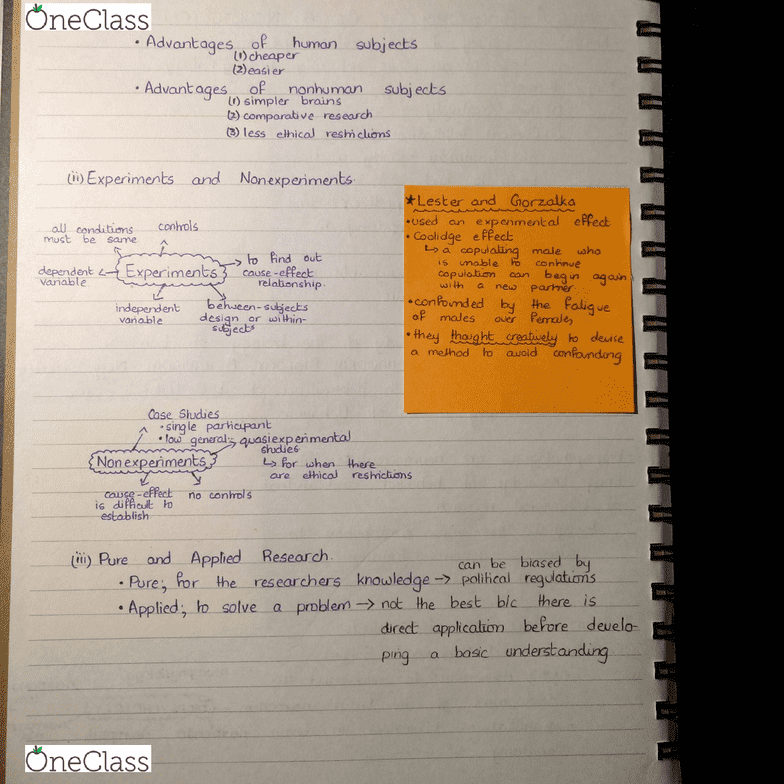 OneClass
• Advantages of human subjects
(1) cheaper
(2) easier
• Advantages of nonhuman subjects
(1) simpler brains
(2) comparative research
(3) less ethical restrictions
(ii) Experiments and Nonexperiments
all conditions
must be same
controls
dependent
variable
Experiments
to find out
cause-effect
relationship.
independent
variable
between-subjects
design or within-
subjects
★ Lester and Gorzalka
• used an experimental effect
• Coolidge effect
↳ a copulating male who
is unable to continue
copulation can begin again
with a new partner
• confounded by the fatigue
of males over females
• they thought creatively to devise
a method to avoid confounding
Case Studies
• single participant
• low general;
quasiexperimental
studies
↳ for when there
are ethical restrictions
Nonexperiments
cause-effect
is difficult to
establish
no controls
(iii) Pure and Applied Research.
• Pure; for the researchers knowledge →
can be biased by
political regulations
• Applied; to solve a problem → not the best b/c there is
direct application before develo-
ping a basic understanding
OneClass